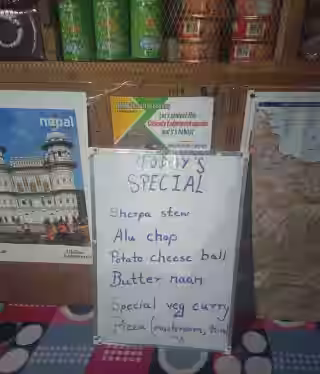 nepal
Let's protect the
and it's habitat
TODAY'S
SPECIAL
Sherpa stew
Alu chop
Potato cheese ball
Butter naan
Special veg curry
Pizza (mushroom,